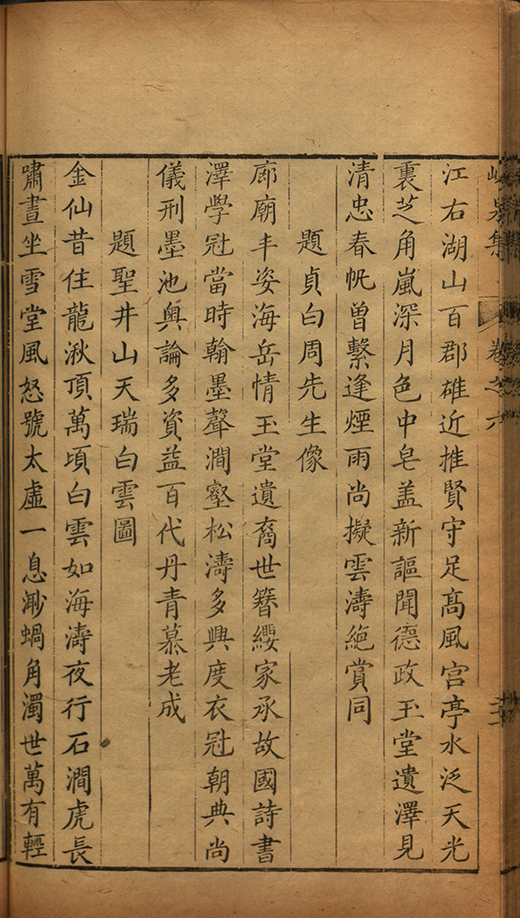 江右湖山百郡雄近推賢守足髙風宫亭水泛天光
裏芝角嵐深月色中皂盖新謳聞德政玉堂遺澤見
清忠春帆曽繫逢煙雨尚擬雲濤絶賞同
題貞白周先生像
廊廟丰姿海岳情玉堂遺裔世簪纓家承故國詩書
澤學冠當時翰墨聲澗壑松濤多興度衣冠朝典尚
儀刑墨池輿論多資益百代丹青慕老成
題聖井山天瑞白雲圖
金仙昔住龍湫頂萬頃白雲如海濤夜行石澗虎長
嘯晝坐雪堂風怒號太虚一息渺蝸角濁世萬有輕